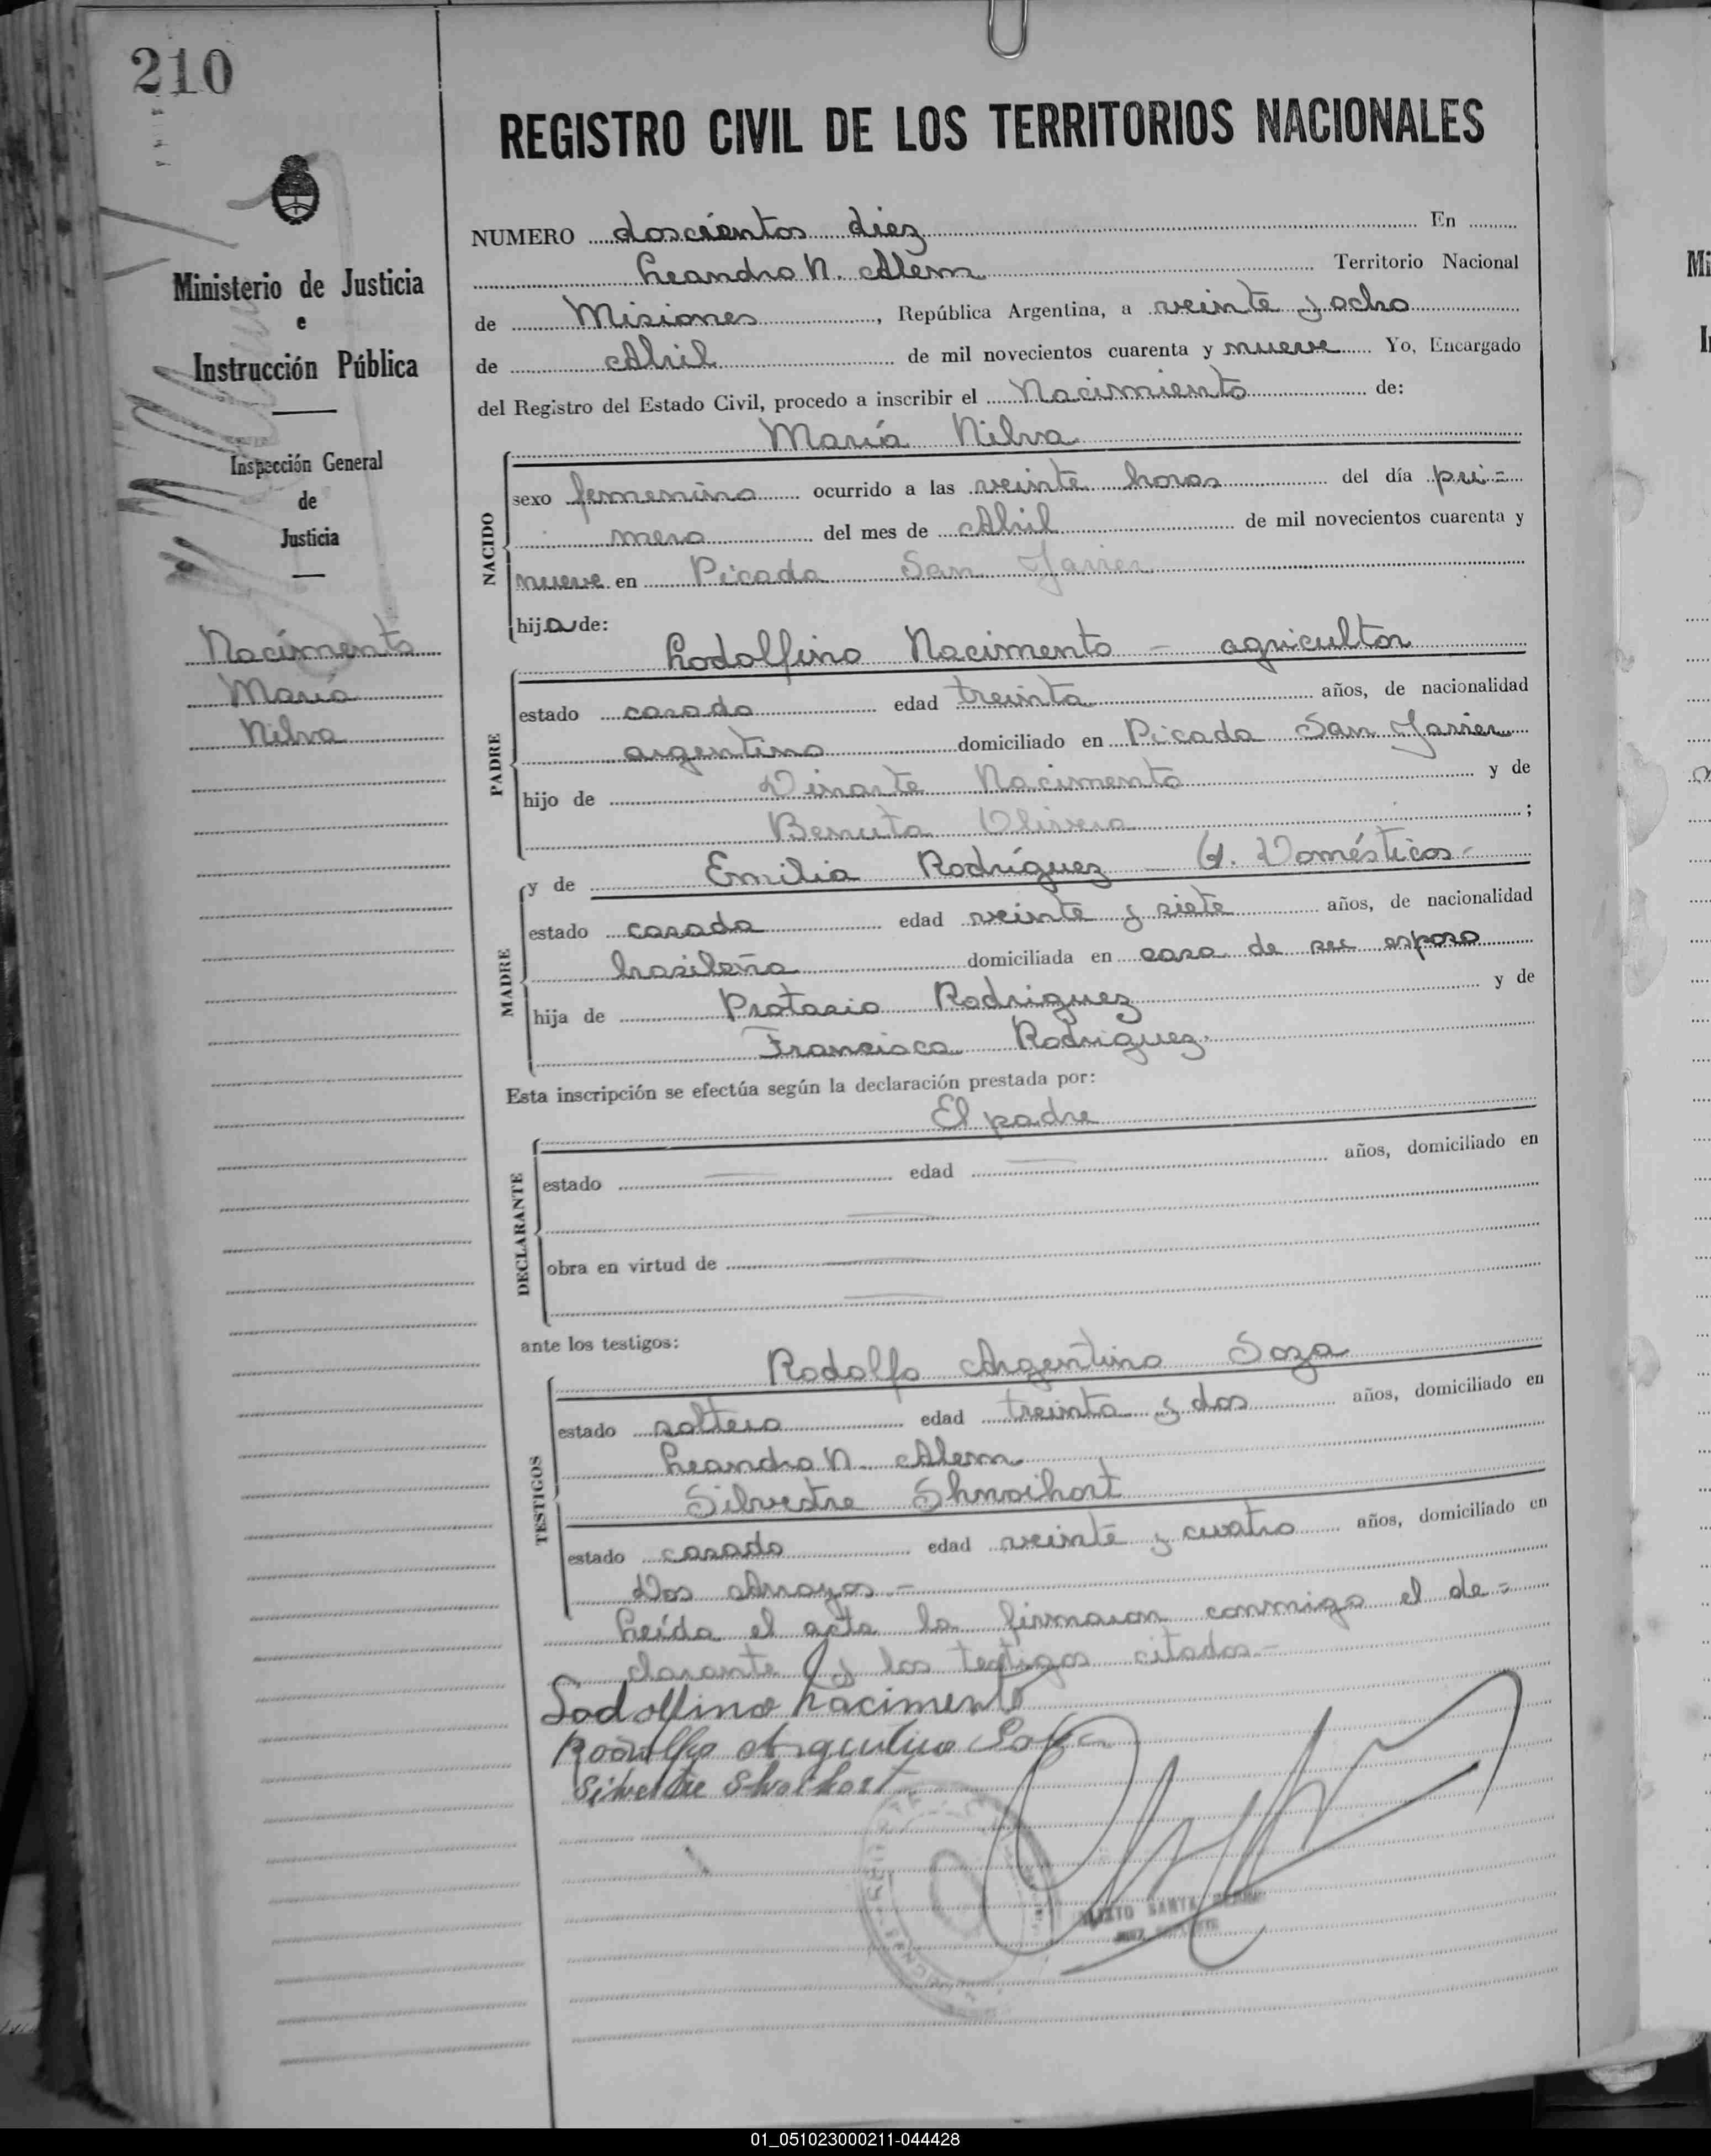 210
REGISTRO CIVIL DE LOS TERRITORIOS NACIONALES
Ministerio de Justicia
e
Instrucción Pública
Inspección General
de
Justicia
Nacimento
María
Nilva
NUMERO doscientos diez En
Leandro N. Alem Territorio Nacional
de Misiones, República Argentina, a veinte y ocho
de Abril de mil novecientos cuarenta y nueve Yo, Encargado
del Registro del Estado Civil, procedo a inscribir el Nacimiento de:
María Nilva
NACIDO
sexo femenino ocurrido a las veinte horas del día pri=
mero del mes de Abril de mil novecientos cuarenta y
nueve en Picada San Javier
hija de:
Lodolfino Nacimento - agricultor
PADRE
estado casado edad treinta años, de nacionalidad
argentino domiciliado en Picada San Javier
hijo de Dinarte Nacimento y de
Benuta Olivera ;
y de Emilia Rodríguez - Q. Domésticos-
MADRE
estado casada edad veinte y siete años, de nacionalidad
brasileña domiciliada en casa de su esposo
hija de Protasio Rodriguez y de
Francisca Rodriguez.
Esta inscripción se efectúa según la declaración prestada por:
El padre
DECLARANTE
estado edad años, domiciliado en
obra en virtud de
ante los testigos:
Rodolfo Argentino Soza
TESTIGOS
estado soltero edad treinta y dos años, domiciliado en
Leandro N. Alem
Silvestre Shwoihort
estado casado edad veinte y cuatro años, domiciliado en
Dos Arroyos -
Leída el acta la firmaron conmigo el de=
clarante y los testigos citados-
Lodolfino Nacimento
Rodolfo Argentino Soza
Silvestre Shwoihort
SANTA
JUEZ
01_051023000211-044428